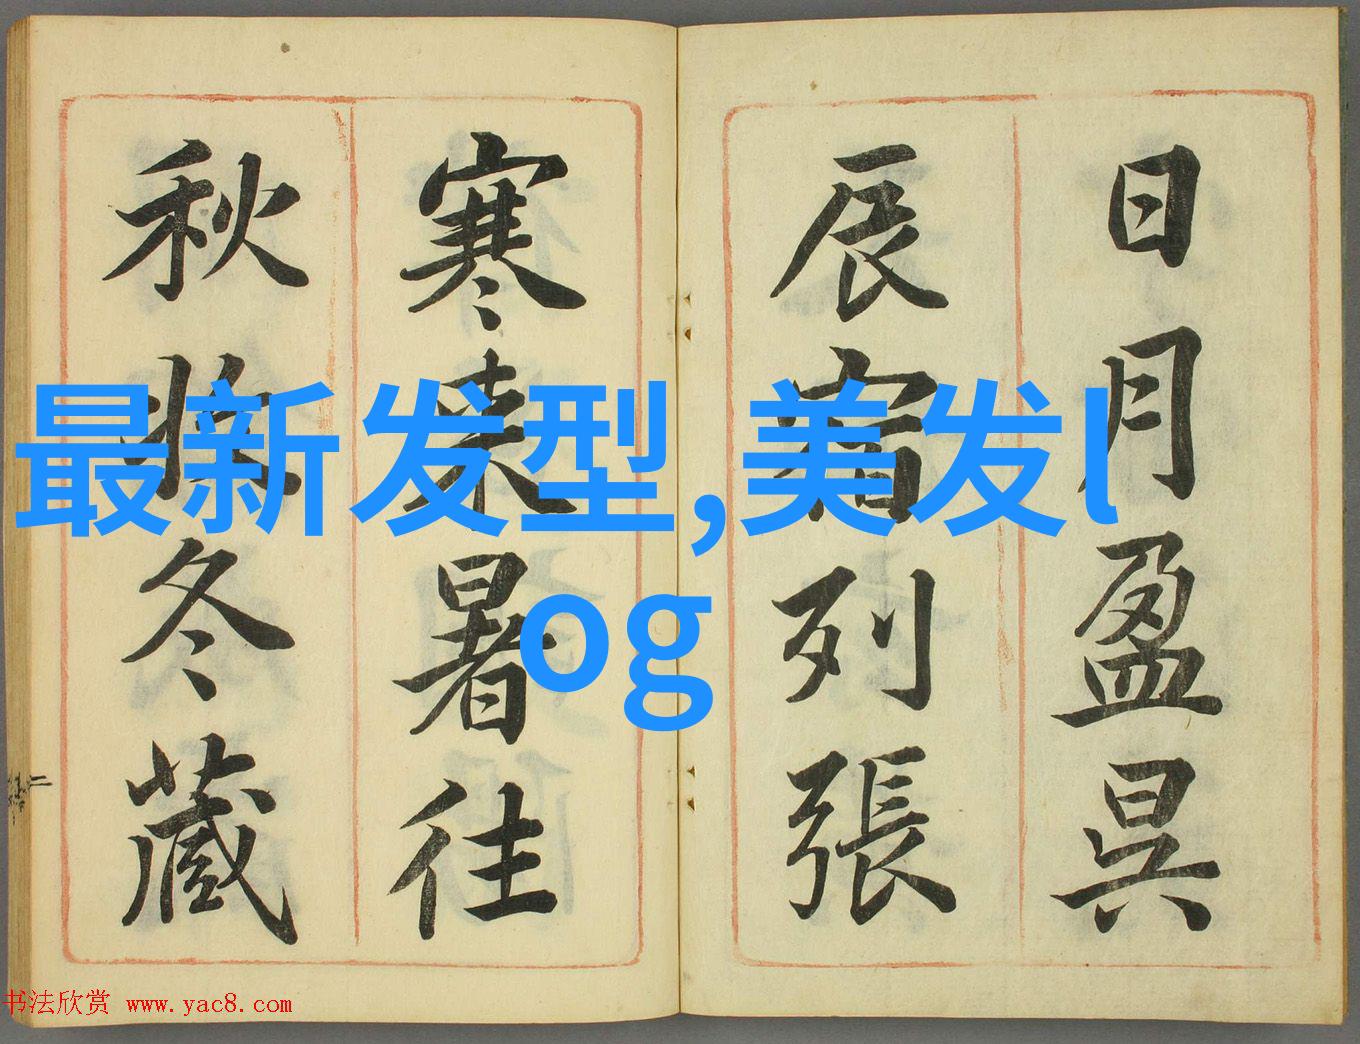 日月盈昃
辰宿列張
寒來暑往
秋收冬藏
最新发型,美发l
og
书法欣赏 www.yac8.com